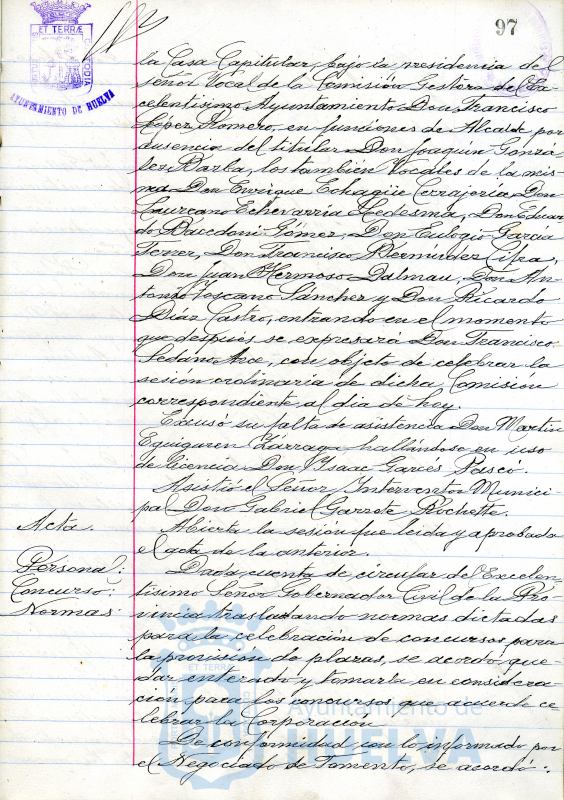 97
ET TERRÆ
CUSTODIA
AYUNTAMIENTO DE HUELVA
la Casa Capitular, bajo la presidencia del
señor Vocal de la Comisión Gestora del Ex-
celentísimo Ayuntamiento Don Francisco
López Romero, en funciones de Alcalde por
ausencia del titular Don Joaquín Gonzá-
lez Barba, los también Vocales de la mis-
ma Don Enrique Echagüe Cerrajería, Don
Laureano Echevarría Ledesma, Don Eduar-
do Bacedoni Gómez, Don Eulogio García
Torrer, Don Francisco Bermudez Cifra,
Don Juan Hermoso Dalmau, Don An-
tonio Toscano Sánchez y Don Ricardo
Díaz Castro, entrando en el momento
que después se expresará Don Francisco
Sedano, con objeto de celebrar la
sesión ordinaria de dicha Comisión
correspondiente al día de hoy.
Excusó su falta de asistencia Don Martín
Eguiguren Lárraga, hallándose en uso
de licencia Don Isaac Garcés Pascó.
Asistió el Señor Interventor Munici-
pal Don Gabriel Garrote Rochette.
Acta.
Abierta la sesión fue leida y aprobada
el acta de la anterior.
Personal:
Concurso:
Normas:
Dada cuenta de circular del Excelen-
tísimo Señor Gobernador Civil de la Pro-
vincia trasladando normas dictadas
para la celebración de concursos para
la provisión de plazas, se acordó que-
dar enterado y tomarla en considera-
ción para los concursos que acuerde ce-
lebrar la Corporación
De conformidad con lo informado por
el Negociado de Fomento, se acordó:
Ayuntamiento de
HUELVA